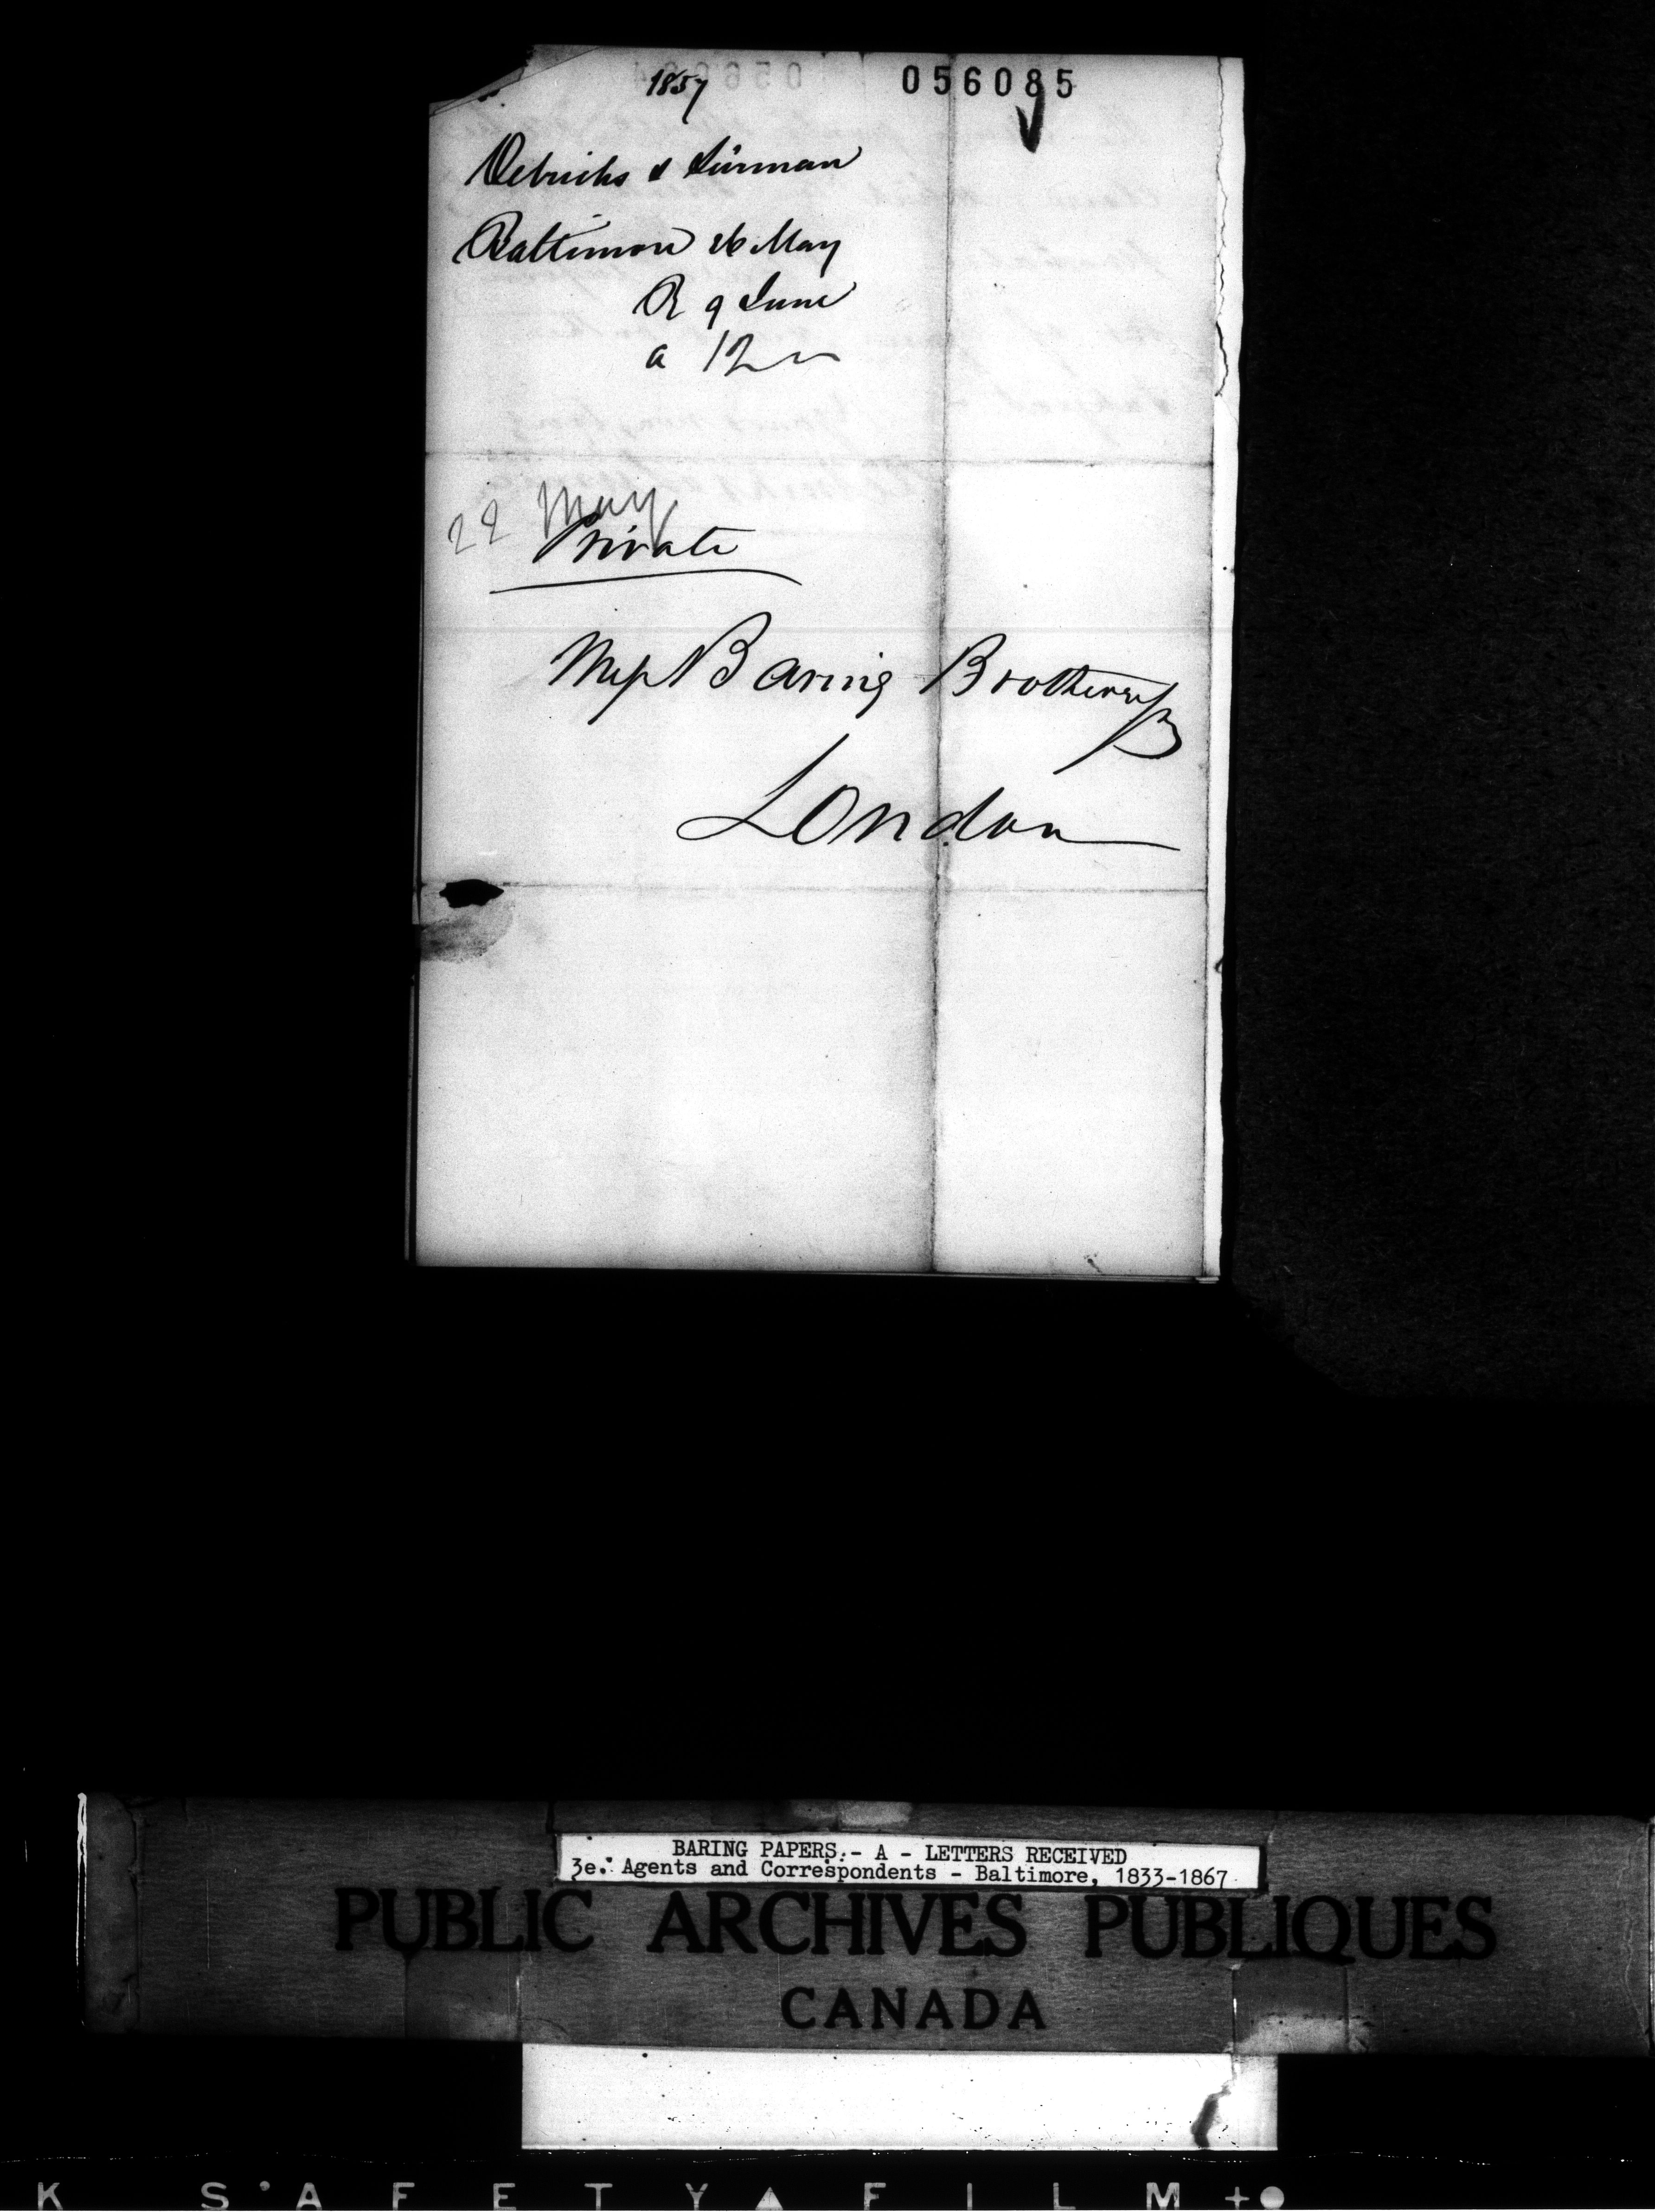 1857
056085
Oelrichs & Lürman
Baltimore 26 May
R 9 June
a 12 "
22 May
Private
Mess Baring Brothers & Co
London
BARING PAPERS.- A - LETTERS RECEIVED
3e. Agents and Correspondents - Baltimore, 1833-1867
PUBLIC ARCHIVES PUBLIQUES
CANADA
K SAFETY FILM